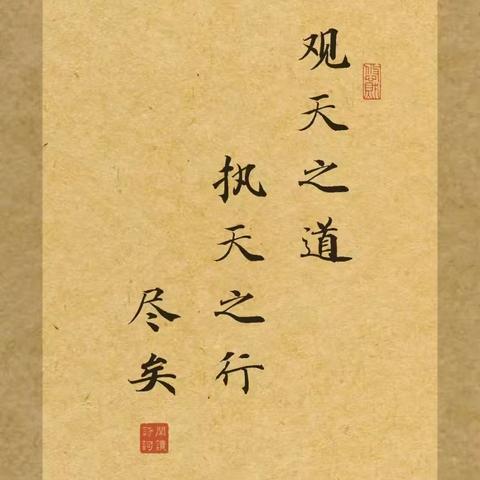 观天之道
执天之行
尽矣